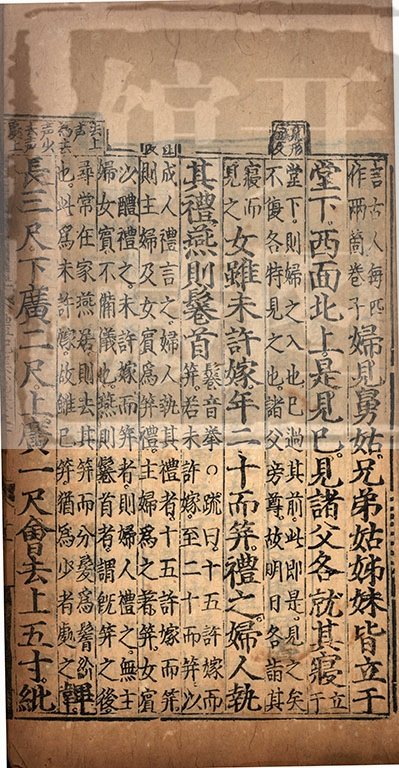 言古人每匹
作兩箇卷子
婦見舅姑兄弟姑姊妹皆立于
堂下西面北上是見已見諸父各就其寢
立于
堂下則婦之入也已過其前此即是見之矣
不復各特見之也諸父旁尊故明日各詣其
寢而
見之
女雖未許嫁年二十而笄禮之婦人執
其禮燕則鬈首
鬈音拳○疏曰十五許嫁而
笄若未許嫁至二十而笄以
成人禮言之婦人執其禮者十五許嫁而笄
則主婦及女賓爲笄禮主婦爲之著笄女賓
以醴禮之未許嫁而笄者則婦人禮之無主
婦女賓不備儀也燕則鬈首者謂旣笄之後
尋常在家燕居則去其笄而分髮爲鬌紒
也此爲未許嫁故雖已笄猶爲少者處之
韠
長三尺下廣二尺上廣一尺會去上五寸紕